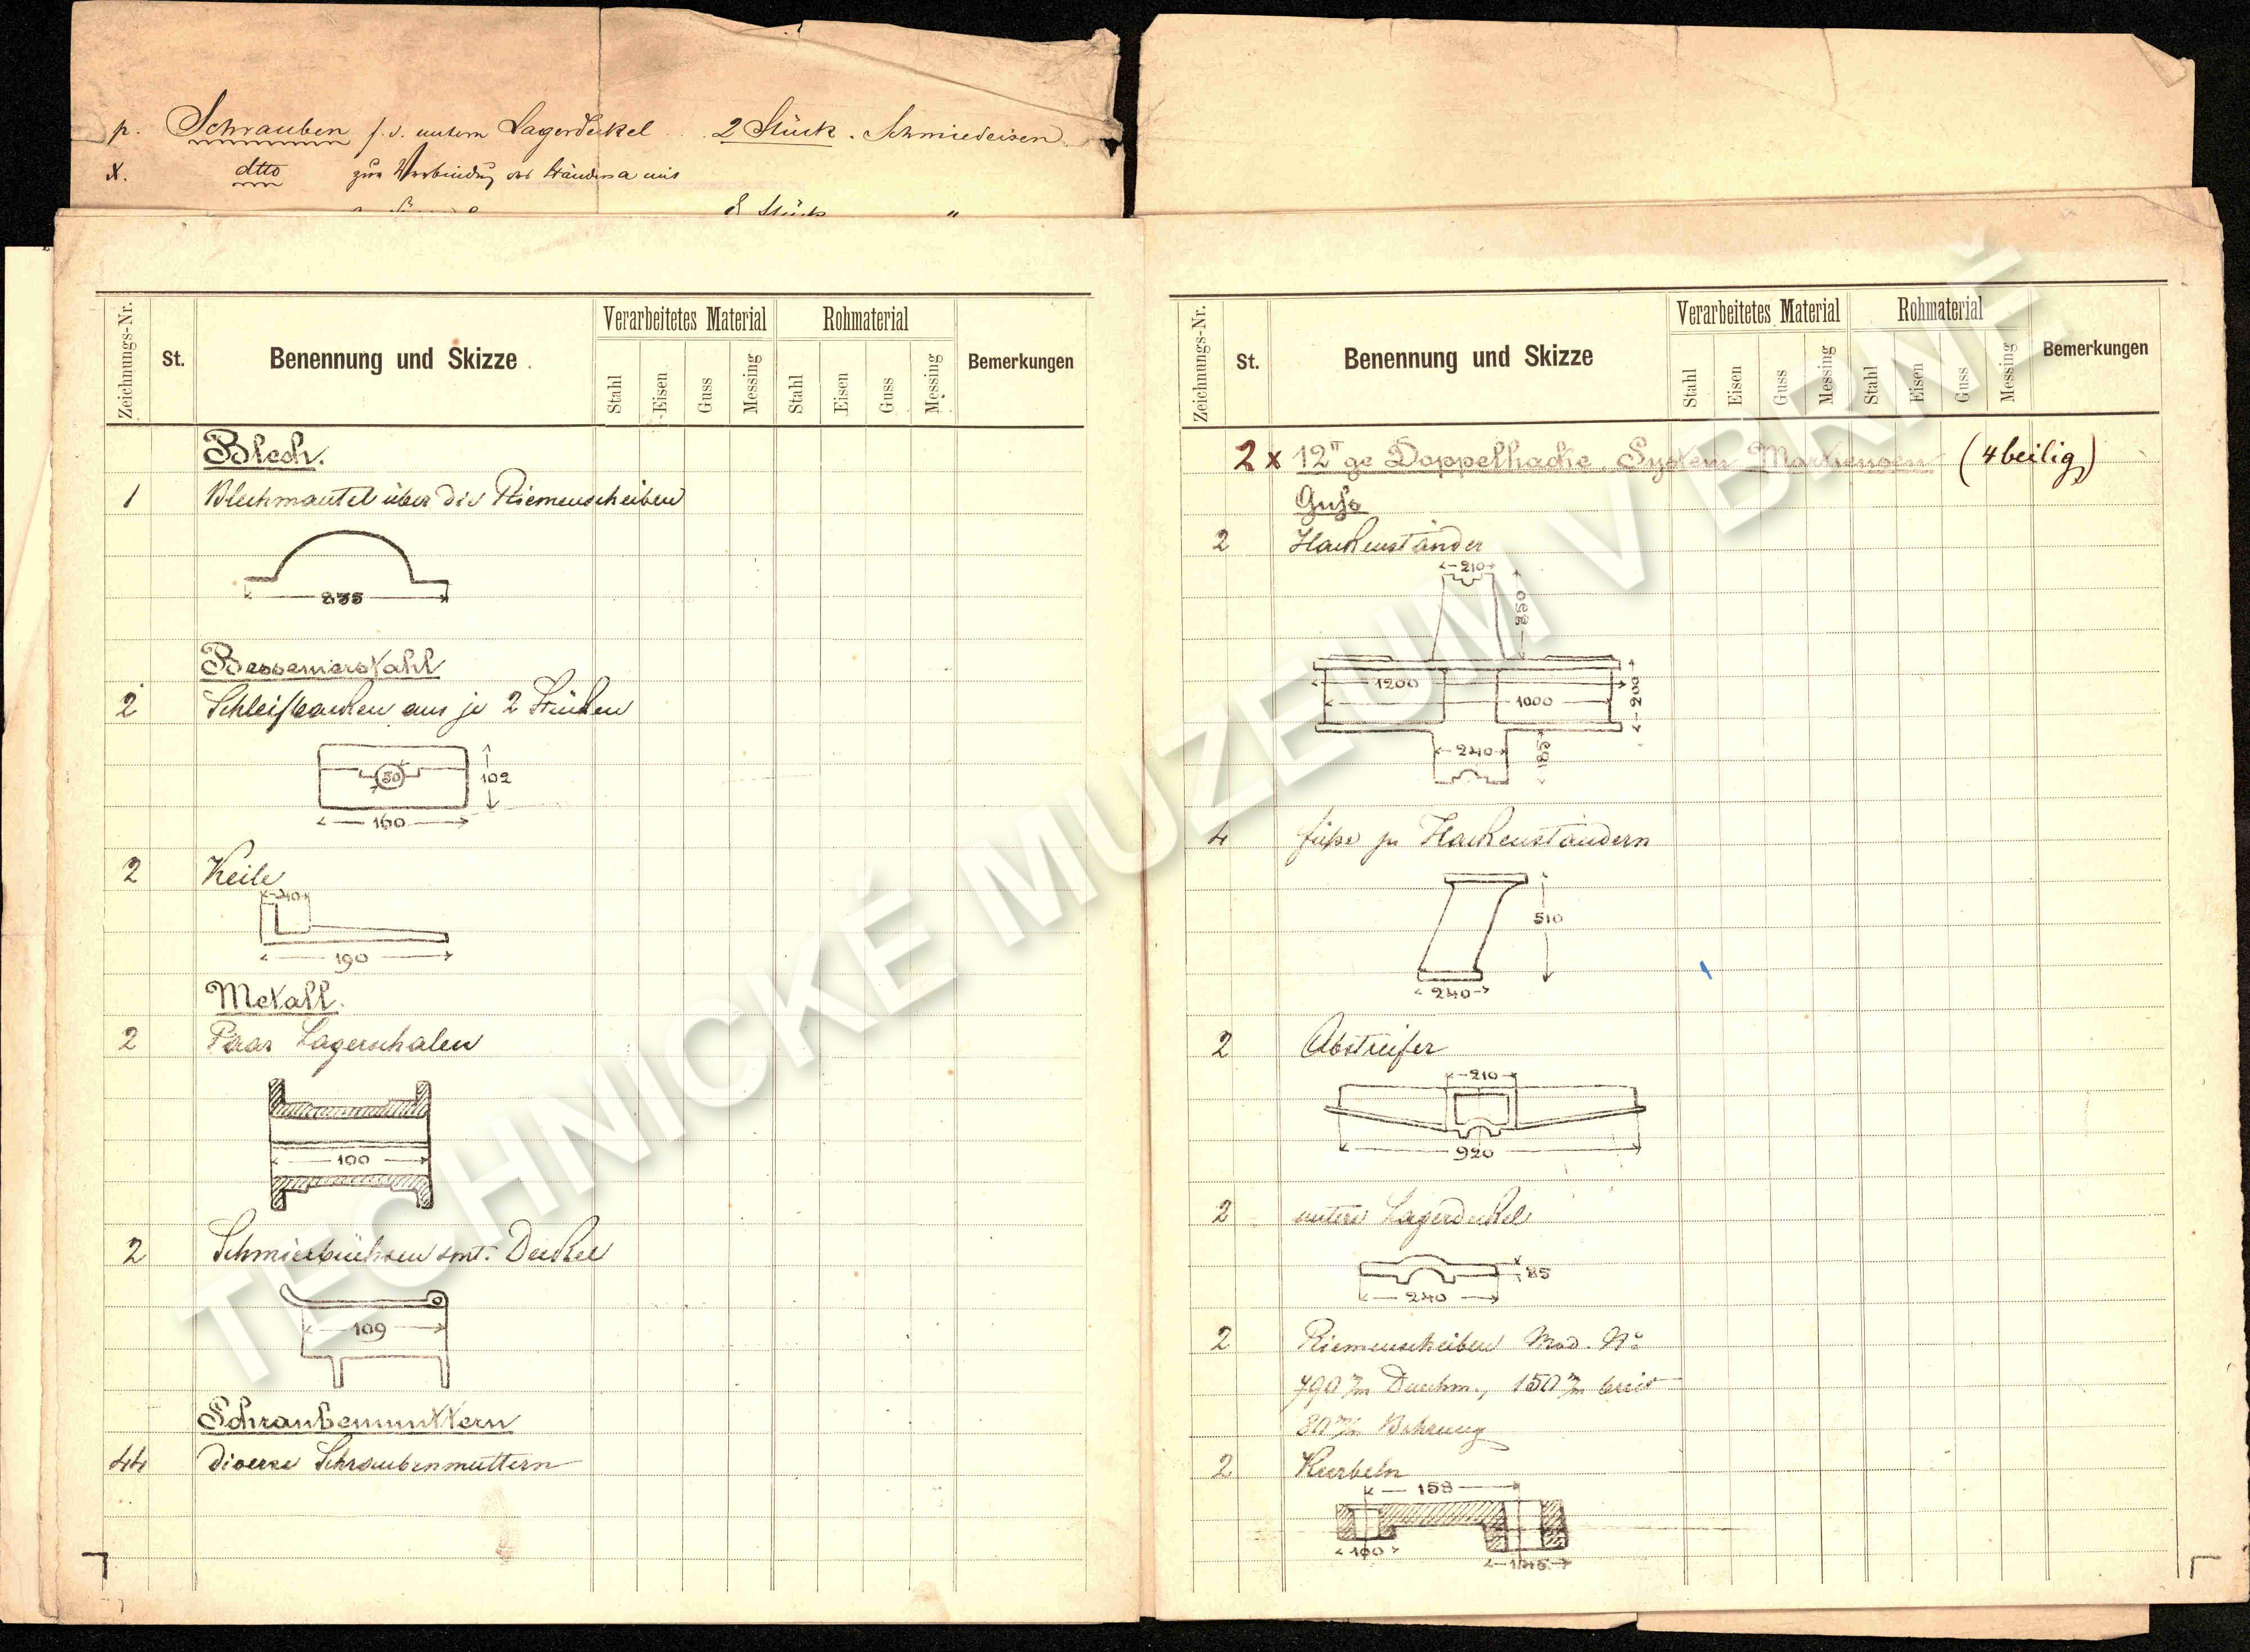 p. Schrauben f. d. untern Lagerdeckel .. 2 Stück. Schmiedeisen
x. dtto zur Verbindung des Ständers a mit
8 Stück "
Zeichnungs-Nr.
St.
Benennung und Skizze
Verarbeitetes Material
Rohmaterial
Stahl
Eisen
Guss
Messing
Stahl
Eisen
Guss
Messing
Bemerkungen
Blech.
1 Blechmantel über die Riemenscheiben
835
Bessemerstahl
2 Schleifbacken aus je 2 Stücken
50
102
160
2 Keile
40
190
Metall.
2 Paar Lagerschalen
100
2 Schmierbüchsen smt. Deckel
109
Schraubenmuttern
44 diverse Schraubenmuttern
Zeichnungs-Nr.
St.
Benennung und Skizze
Verarbeitetes Material
Rohmaterial
Stahl
Eisen
Guss
Messing
Stahl
Eisen
Guss
Messing
Bemerkungen
2 x 12" ge Doppelhacke. System Martensen (4 beilig)
Guß
2 Hackenständer
210
850
1200
1000
200
240
185
4 Füße zu Hackenständern
510
240
2 Abstreifer
210
920
2 untere Lagerdeckel
85
240
2 Riemenscheiben Mod. No
790 m/m Durchm., 150 m/m breit
80 m/m Bohrung
2 Kurbeln
158
100
145
TECHNICKÉ MUZEUM V BRNĚ